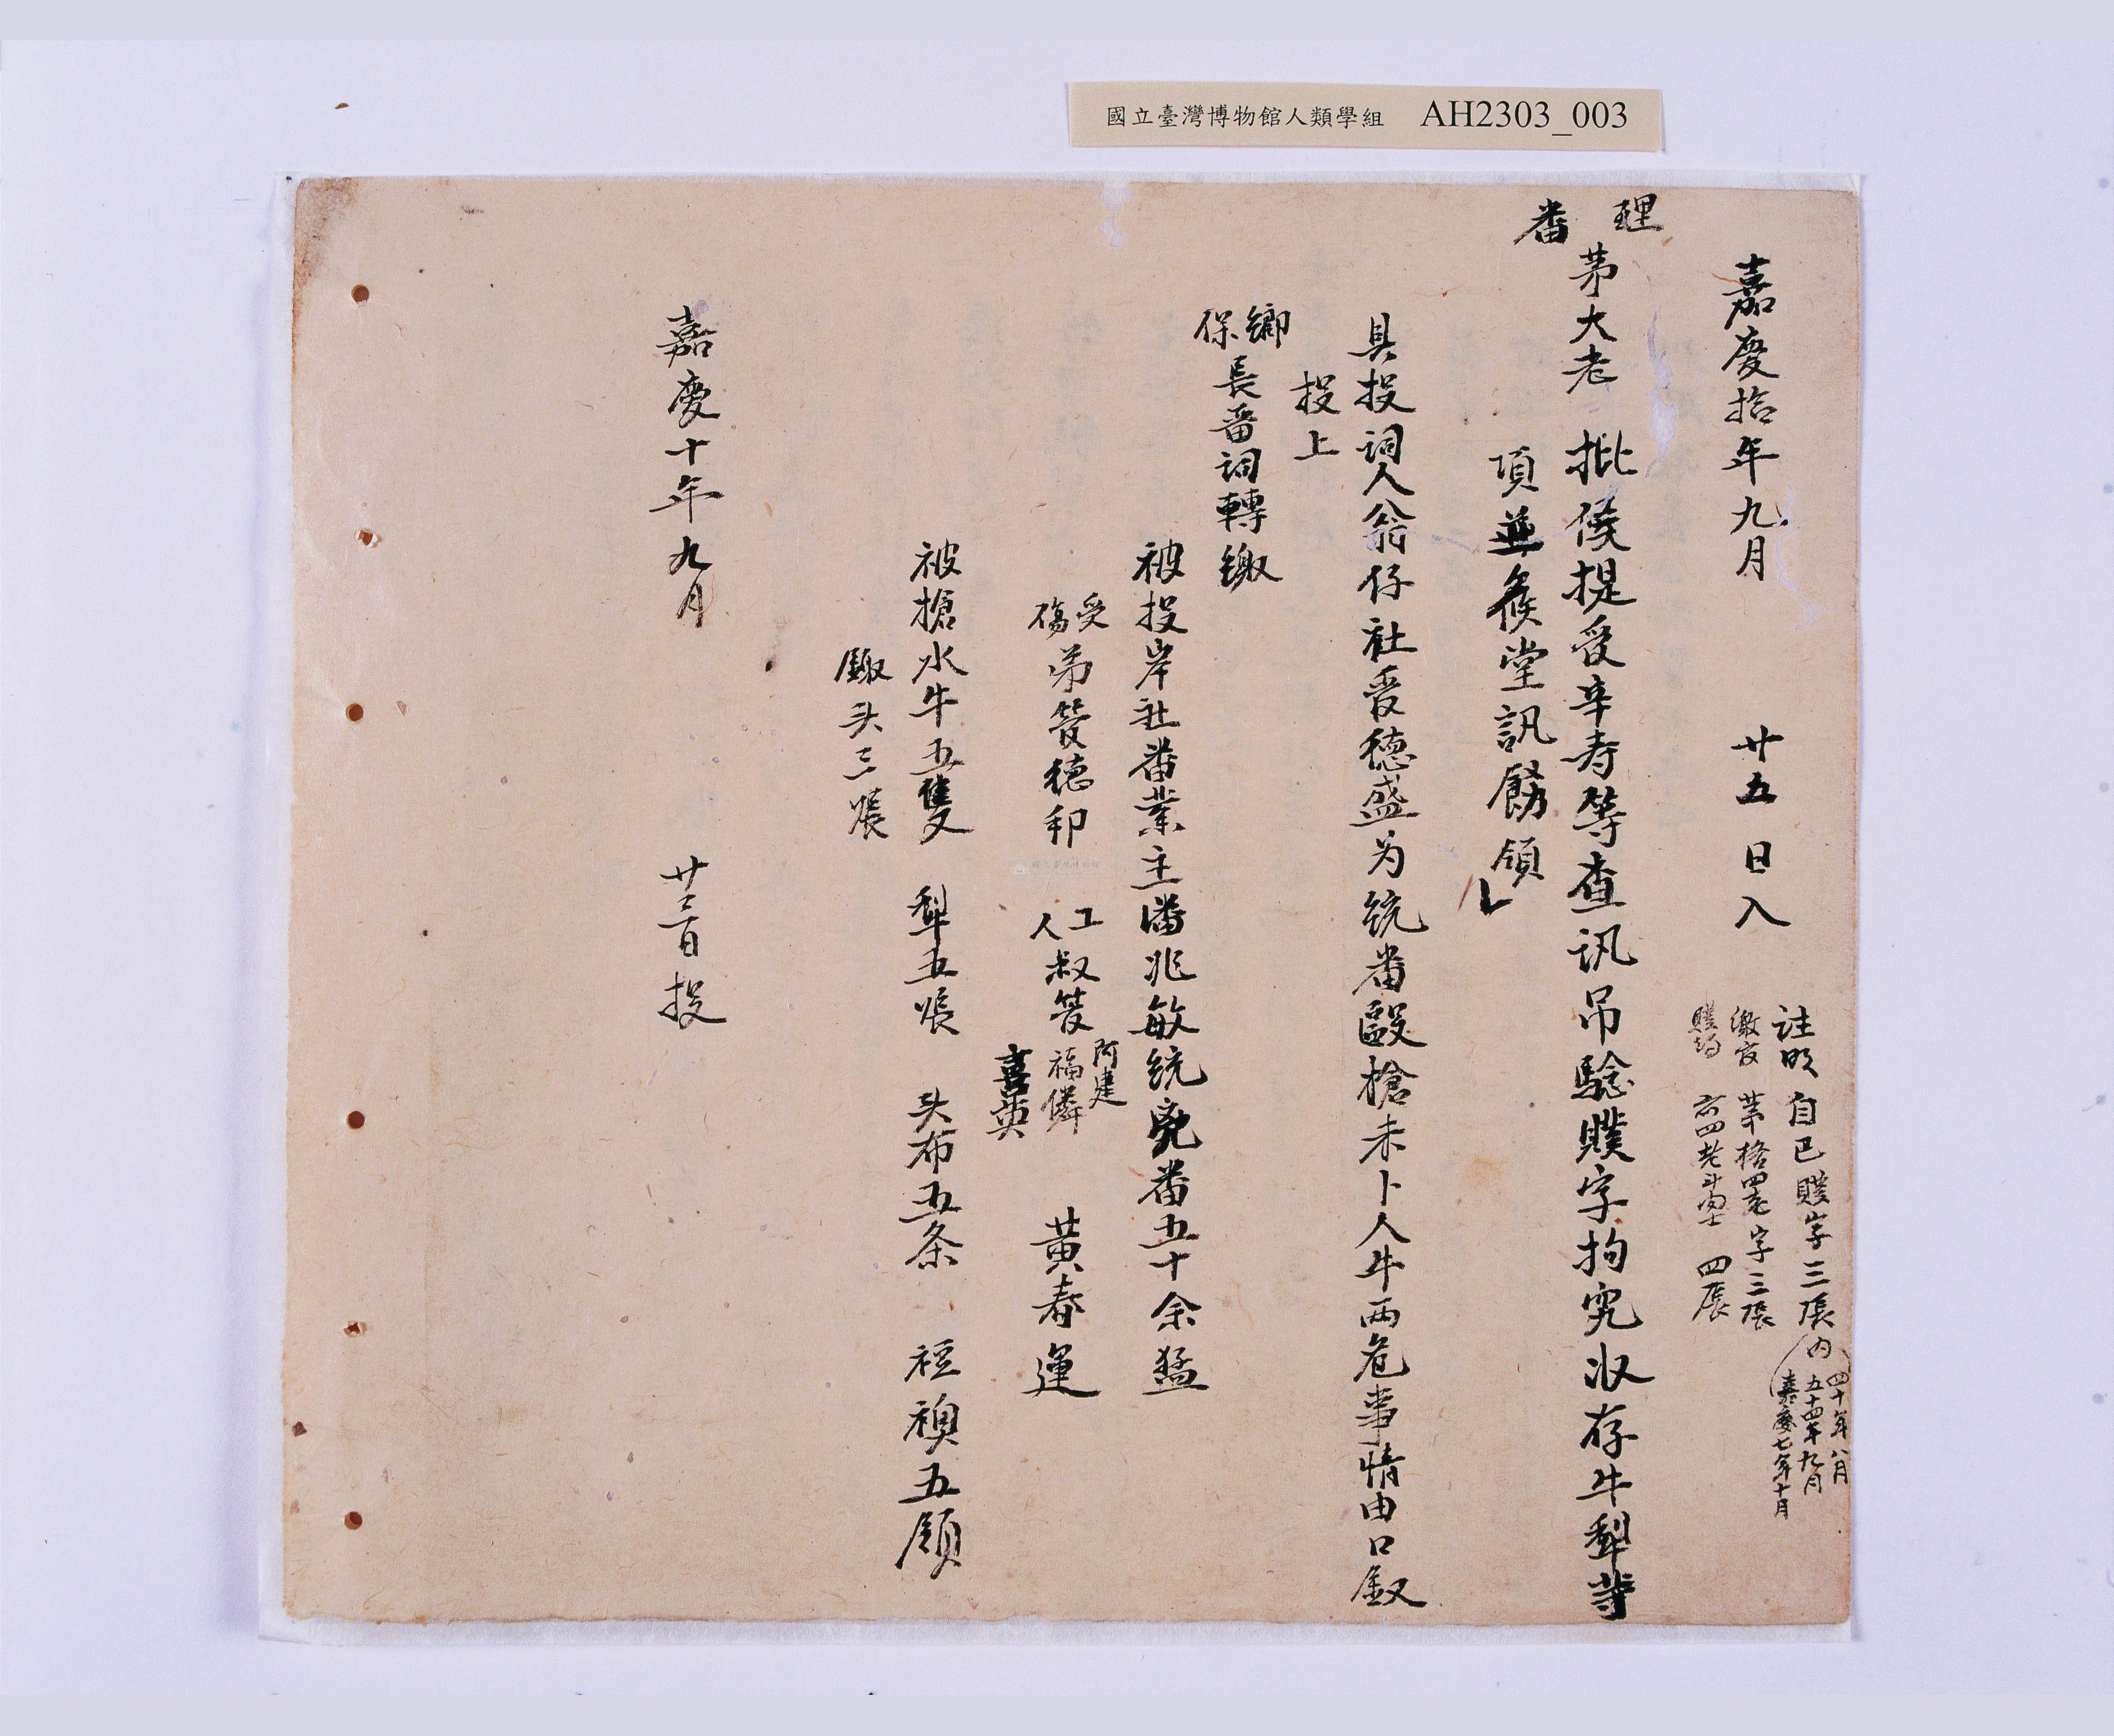 國立臺灣博物館人類學組 AH2303_003
嘉慶拾年九月 廿五日入
註明 自己贌字三張 內
四十年八月
五十四年九月
嘉慶七年十月
字三張
四張
理番 茅大老 批候提受辛寿等查訊吊驗贌字拘究収存牛犁等
項並候堂訊餙領
具投詞人翁仔社受德盛为统番毆搶未卜人牛两危事情由口
投上
鄉保長番詞轉繳
被投岸社番業主潘兆敏统兇番五十余猛
受傷 弟 德 工人 叔 阿建 福 喜英 黃春運
被搶水牛五隻 犁五張 头布五条 裋襖五領
头三張
嘉慶十年九月 廿 日投